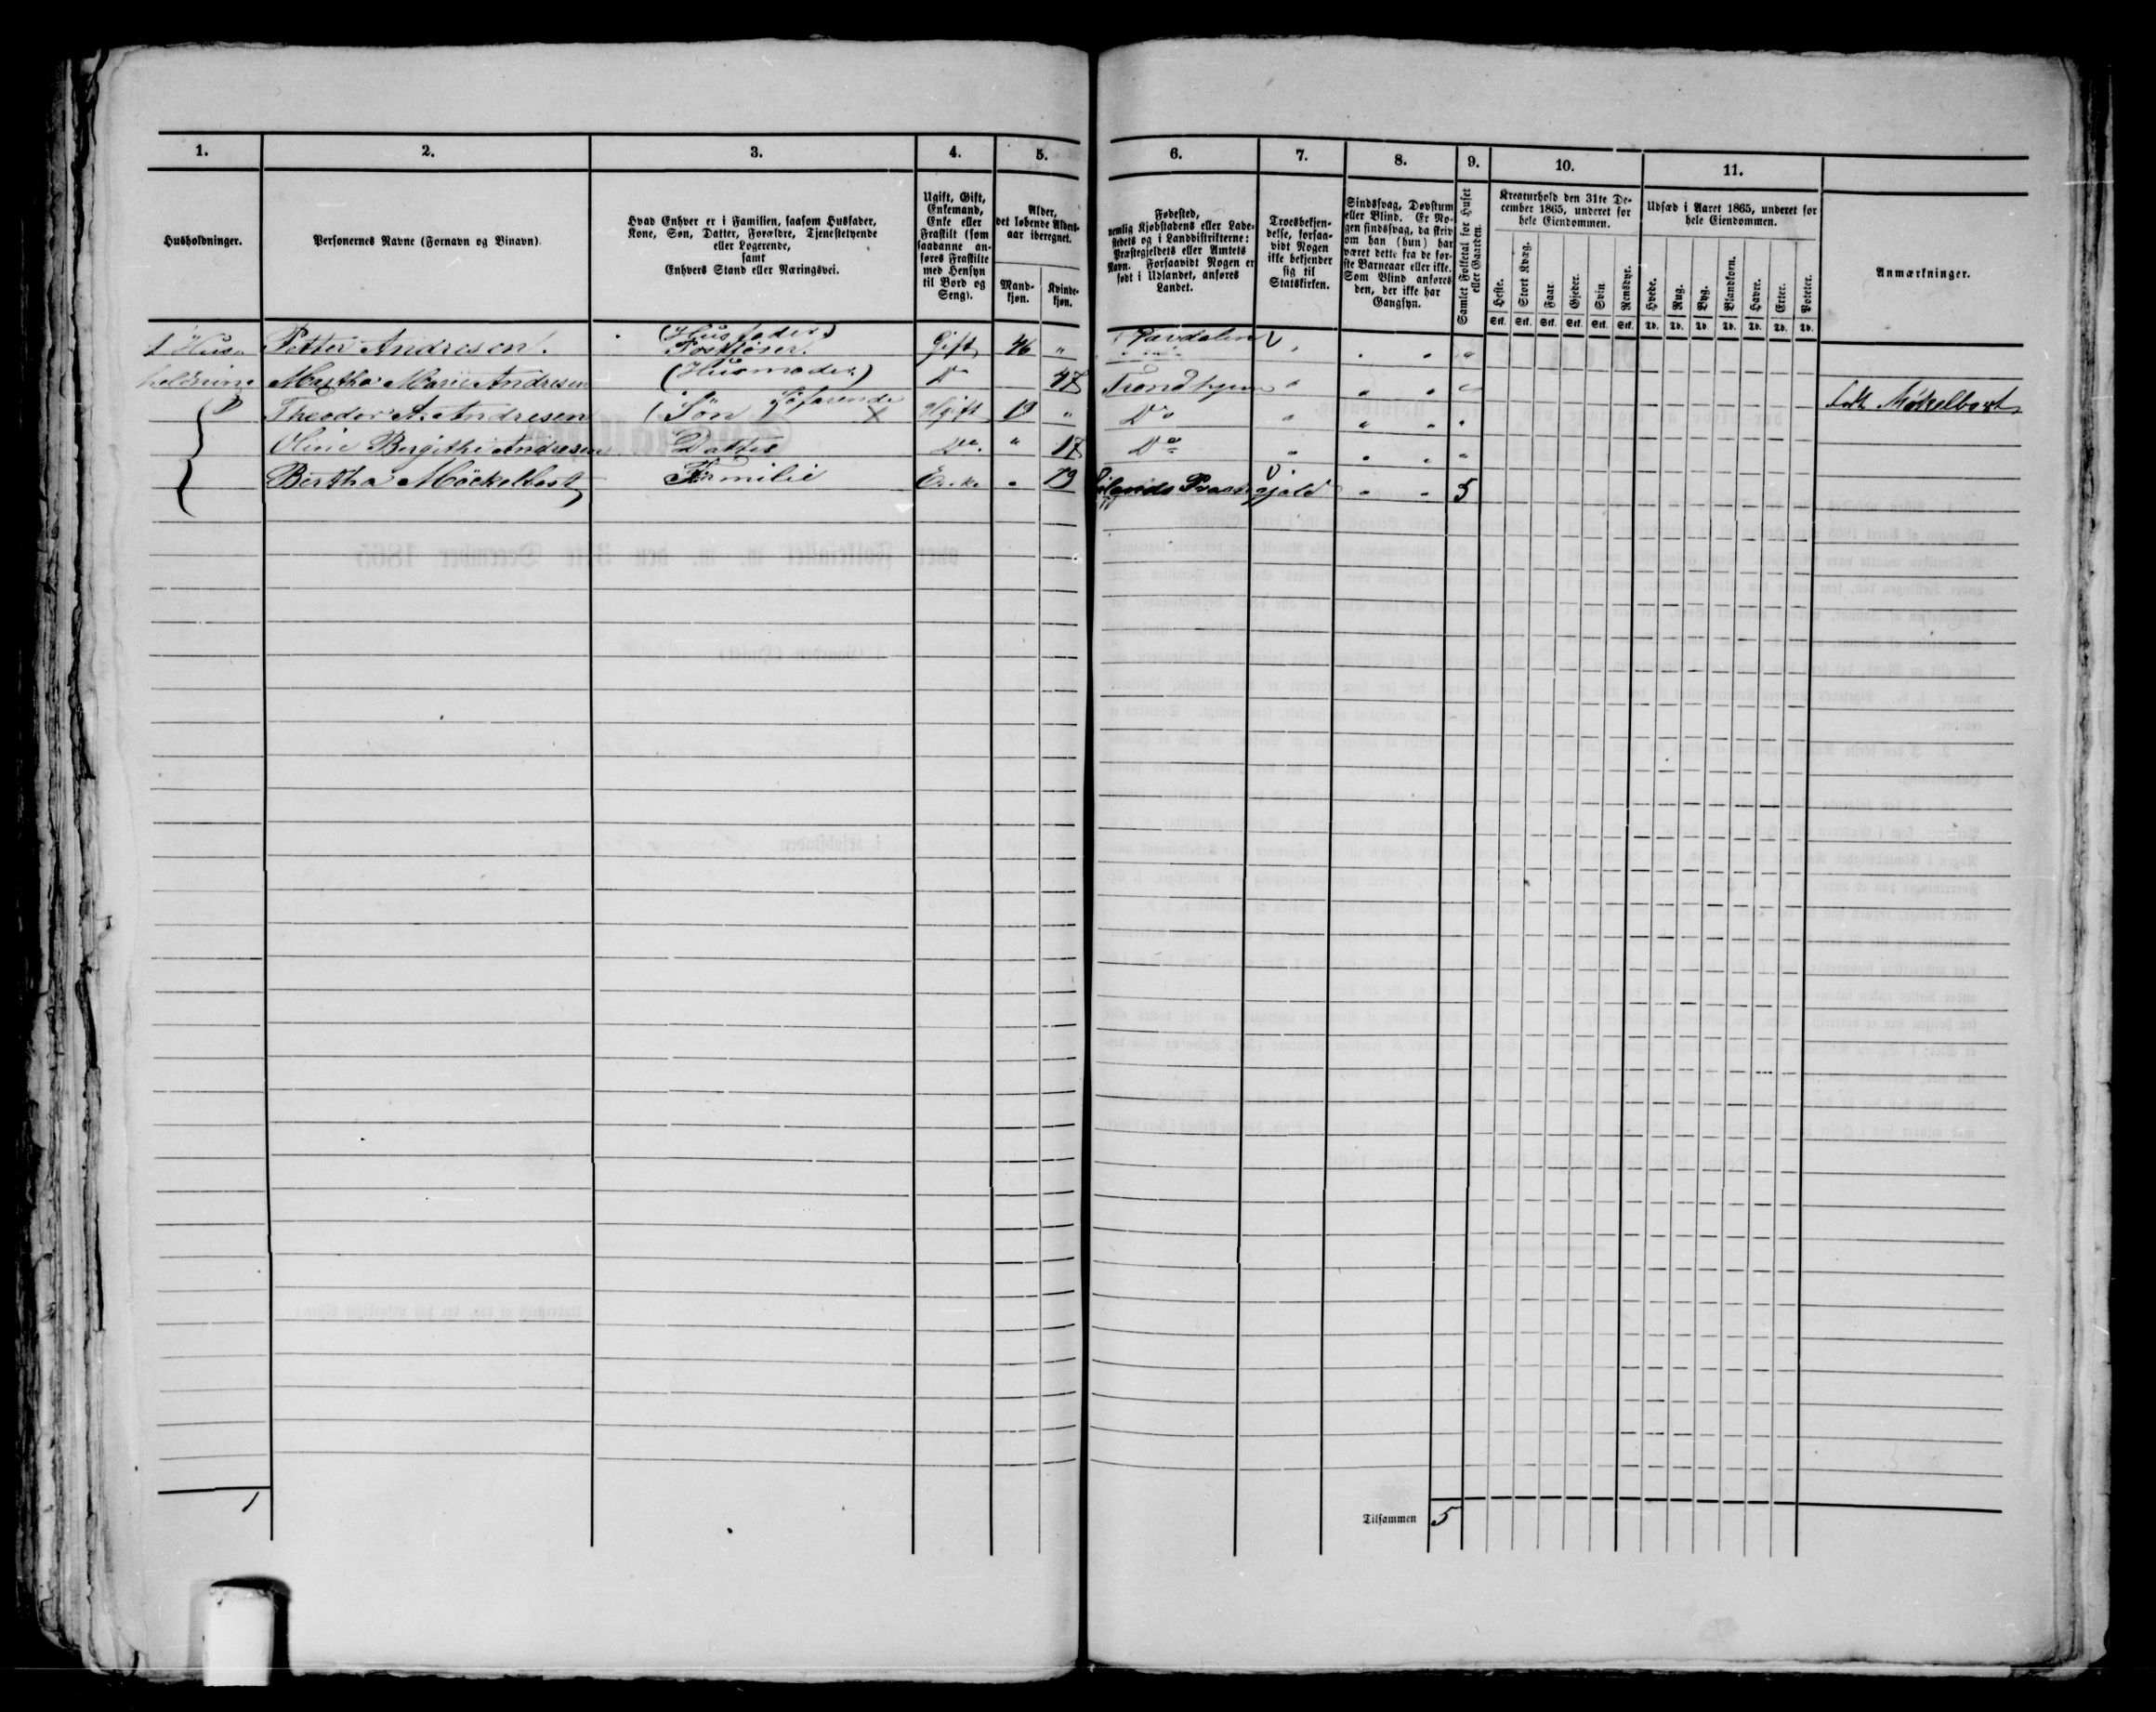 1.
2.
3.
4.
5.
6.
7.
8.
9.
10.
11.
Husholdninger.
Personernes Navne (Fornavn og Binavn).
Hvad Enhver er i Familien, saasom Husfader,
Kone, Søn, Datter, Forældre, Tjenestetyende
eller Logerende,
samt
Enhvers Stand eller Næringsvei.
Ugift, Gift,
Enkemand,
Enke eller
Fraskilt (som
saadanne an-
føres Fraskilte
med Hensyn
til Bord og
Seng).
Alder,
det løbende Alders-
aar iberegnet.
Mand-
kjøn.
Kvinde-
kjøn.
Fødested,
nemlig Kjøbstadens eller Lade-
stedets og i Landdistrikterne:
Præstegjeldets eller Amtets
Navn. Forsaavidt Nogen er
født i Udlandet, anføres
Landet.
Troesbekjen-
delse, forsaa-
vidt Nogen
ikke bekjender
sig til
Statskirken.
Sindssvag, Døvstum
eller Blind. Er No-
gen sindssvag, da skriv
om han (hun) har
været dette fra de før-
ste Barneaar eller ikke.
Som Blind anføres
den, der ikke har
Gangsyn.
Samlet Folketal for Huset
eller Gaarden.
Kreaturhold den 31te De-
cember 1865, underet for
hele Eiendommen.
Heste. Stort Kvæg. Faar. Gjeder. Svin. Rensdyr.
Stk. Stk. Stk. Stk. Stk. Stk.
Udsæd i Aaret 1865, underet for
hele Eiendommen.
Hvede. Rug. Byg. Blandkorn. Havre. Erter. Poteter.
Td. Td. Td. Td. Td. Td. Td.
Anmærkninger.
1 Hus= Petter Andresen. (Husfader) Gift 46 "
holdning Martha Marie Andresen (Husmoder) Do 47 Trondhjem
Theodor A. Andresen (Søn) Søfarende X Ugift 19 " Do Møkelbost
Oline Bergithe Andresen Datter Do " 17 Do
Bertha Möckelbost Familie Enke " 79 5
1
Tilsammen 5